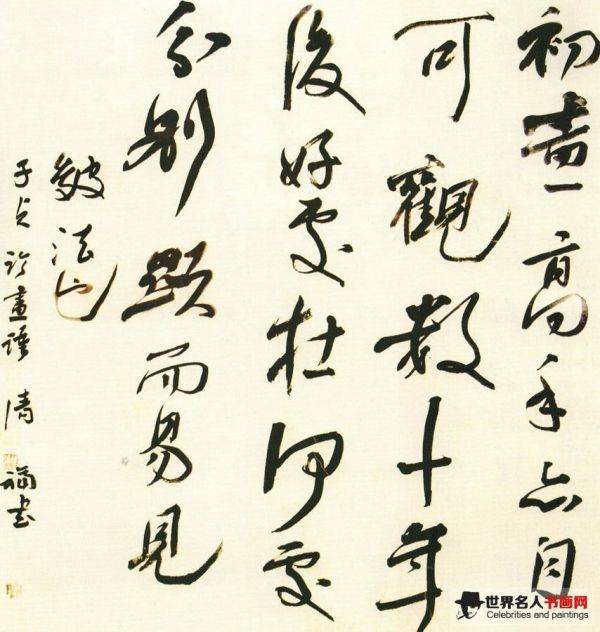 初畫高手亦自
可觀數十年
後好處在何處
分別顯而易見
皴法也
子貞論畫語 清福書
世界名人书画网
Celebrities and paintings